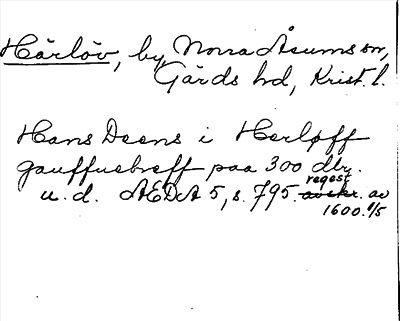 Härlöv, by, Norra Åsums sn,
Gärds hd, Krist. l.
Hans Deens i Herløff
gauffuebreff paa 300 dlr.
u. d. ÆDA 5, s. 795. regest av
1600. 8/5